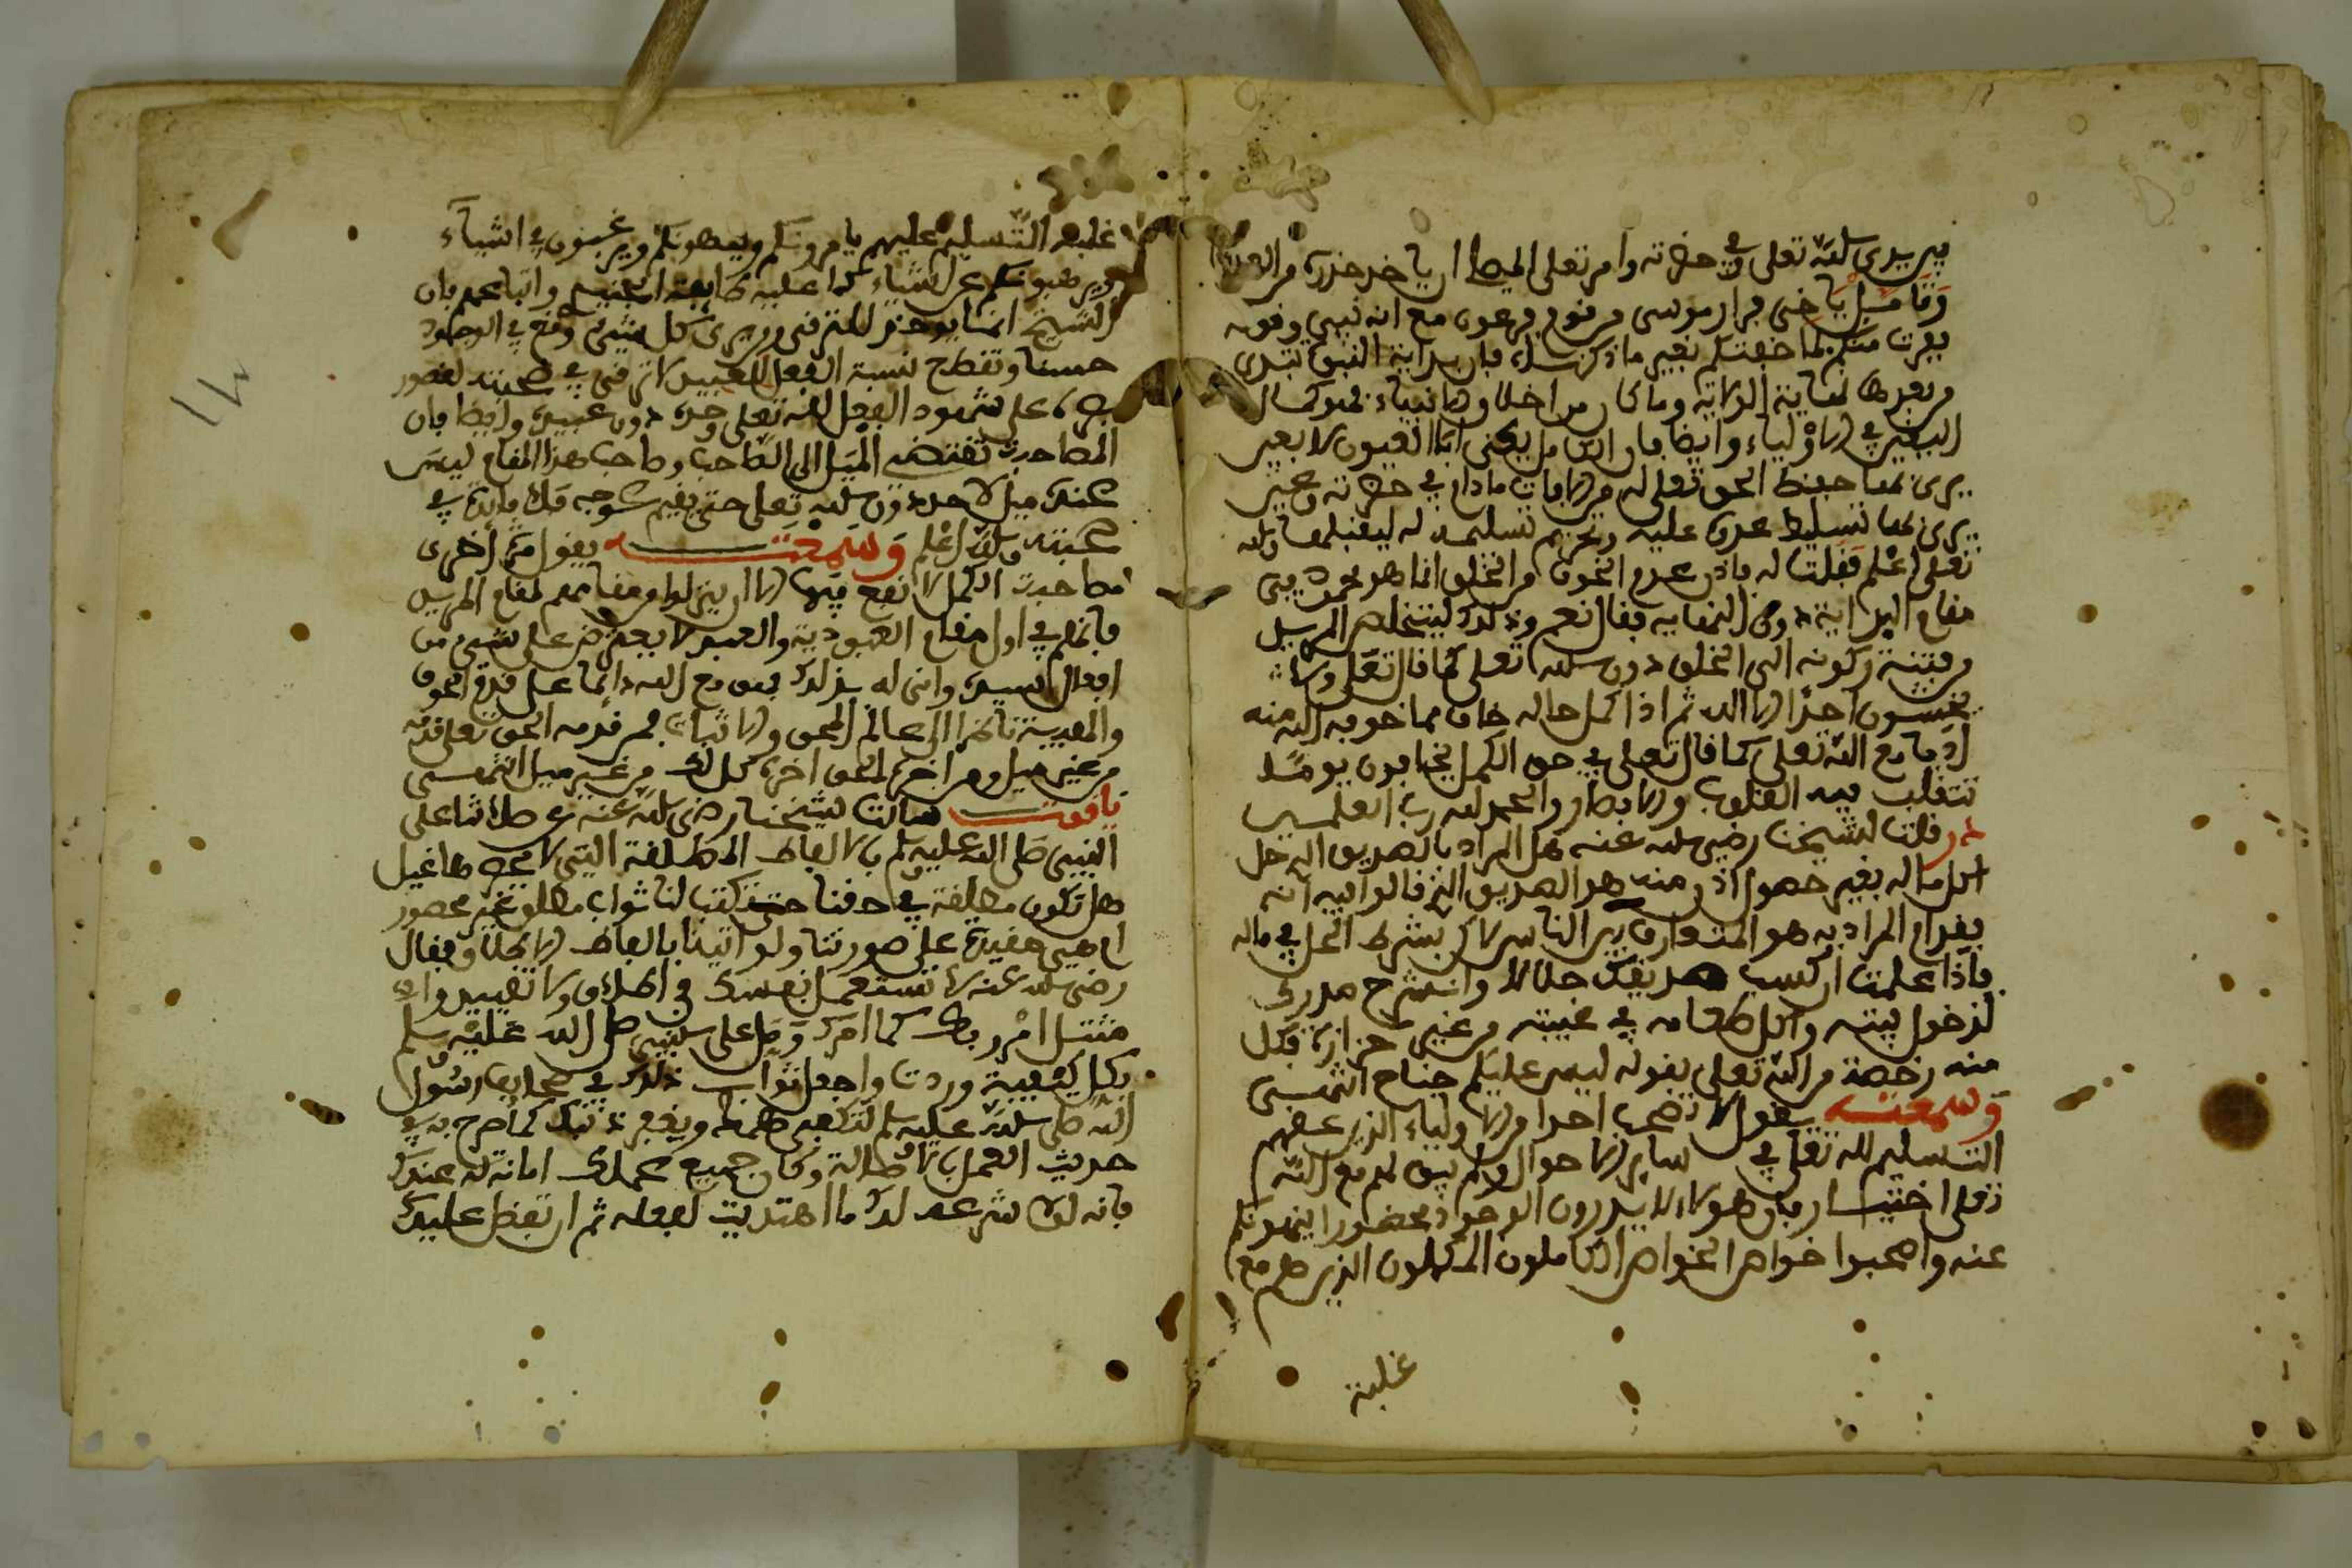 بين يدي الله تعلى في حضرته وامر تعلى المصلي ان ياخذ حذره من العدو
وتامل ياخي فرار موسى من قوم فرعون مع انه نبي وقوله
ففررت منكم لما خفتكم تعثر ما ذكرناه فان بداية النبوة تبتدى
من بعدها نهاية الولاية وما كان من اخلاق الانبياء فهو كمال
اليقين في الاولياء وايضا فان الكامل يخشى انما العيون لا بعين
يرى بها حفظ الحق تعلى له من الافات مادام في حضرته وعين
يرى بها تسليط عدوه عليه وتحريم تسليمه له ليقتلها والله
تعلى اعلم فقلت له فاذن عدم الخوف من الخلق انما هو محمود في
مقام البداية دون النهاية فقال نعم وذلك ليتخلص المريد
من فتنة ركونه الى الخلق دون الله تعلى كما قال تعلى ولا
يخشون احدا الا الله ثم اذا كمل حاله خاف مما خوفه الله منه
ادبا مع الله تعلى كما قال تعلى في حق الكمل يخافون يوما
تتقلب فيه القلوب والابصار والحمد لله رب العلمين
در قلت لشيخنا رضي الله عنه هل المراد بالصديق الذي حل
اكل ماله بغير حصول اذن منه هو الصديق الذي قالوا فيه انه
يعدم المراد به هو المتعارف بين الناس لاكن بشرط الحل في ماله
فاذا علمت ان كسب صديقك حلالا وانشرح صدرك
لدخول بيته واكل طعامه في غيبته من غير حزازة فكل
منه رخصة من الله تعلى بقوله ليس عليكم جناح انتهى
وسمعته يقول لا تصحب احدا من الاولياء الذين عمهم
التسليم لله تعلى في ساير الاحوال ولم يبق لهم مع الله
تعلى اختيار فان هولاء لا يريدون الوجود محضورا ينهونكم
عنه واصحبوا خواص الخواص الكاملون المكملون الذين هم مع
غلبة
غلبة التسليم عليهم يامرونكم وينهونكم ويرغبونكم في اشياء
ويرهبونكم عن اشياء كما عليه طايفة الجنيد واتباعهم فان
الشيخ انما يوخذ للترقي ومن يرى كل شيء وقع في الوجود
حسنا وتقطع نسبة الفعل للعبيد لا ترقي في صحبته لقصور
نظره على شهود الفعل لله تعلى وحده دون عبيده وايضا فان
المصاحبة تقتضي الميل الى الصاحب وصاحب هذا المقام ليس
عنده ميل لاحد دون الله تعلى حتى يقيم عوجه فلا فايدة في
صحبته والله اعلم وسمعته يقول مرة اخرى
مصاحبة الكمل لا تقع فيها الا ان ينزلوا من مقامهم لمقام المريد
فانهم في اول مقام العبودية والعبد لا يعترض على شيء من
افعال سيده وانى له بذلك فهو مع الله دائما على قدم الخوف
والهيبة ناظرا الى عالم المحو والاثبات فمن قدمه الحق تعلى قدمه
من غير ميل ومن اخره الحق اخره كذلك من غير ميل انتهى
ياقوت سالت شيخنا رضي الله عنه عن صلاتنا على
النبي صلى الله عليه وسلم بالالفاظ المطلقة التي لا يحصرها عقل
هل تكون مطلقة في حقنا حتى تكتب لنا ثواب مطلق غير محصور
ام هي مقيدة على صورتنا ولو اتينا بالفاظ الاطلاق فقال
رضي الله عنه لا تستعمل نفسك في اطلاق ولا تقييد وانما
متثل امر ربك كما امرك وصل على النبي صلى الله عليه وسلم
بكل كيفية وردت واجعل ثواب ذلك في صحايف رسول
الله صلى الله عليه وسلم لتكفى همك ويغفر ذنبك كما صرح به في
حديث العمل بالاصالة وكان جميع عملك امانة له عندك
فانه لولا شرعه لك ما اهتديت لفعله ثم ان تفضل عليك